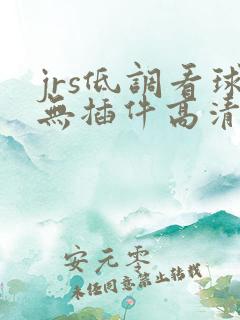 jrs低調看球
無插件高清
安元零
未任同意禁止转载